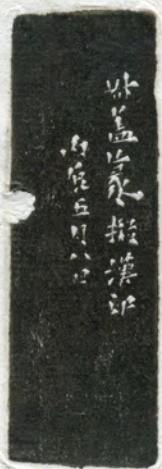 叔蓋篆擬漢印
丙辰五月八日